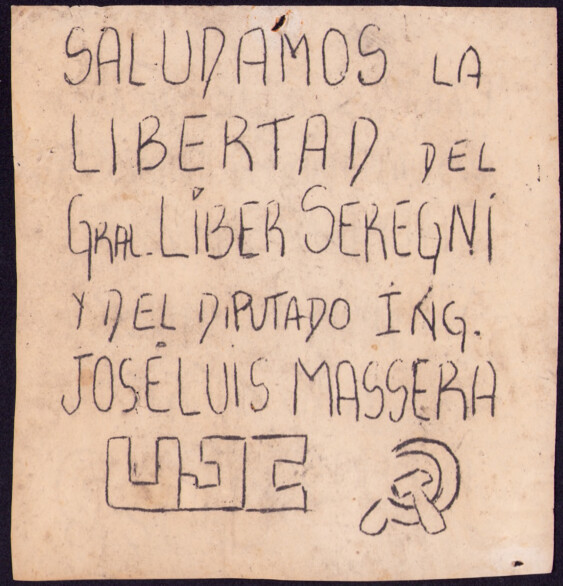 SALUDAMOS LA
LIBERTAD DEL
GRAL. LIBER SEREGNI
Y DEL DIPUTADO ING.
JOSÉ LUIS MASSERA
UJC